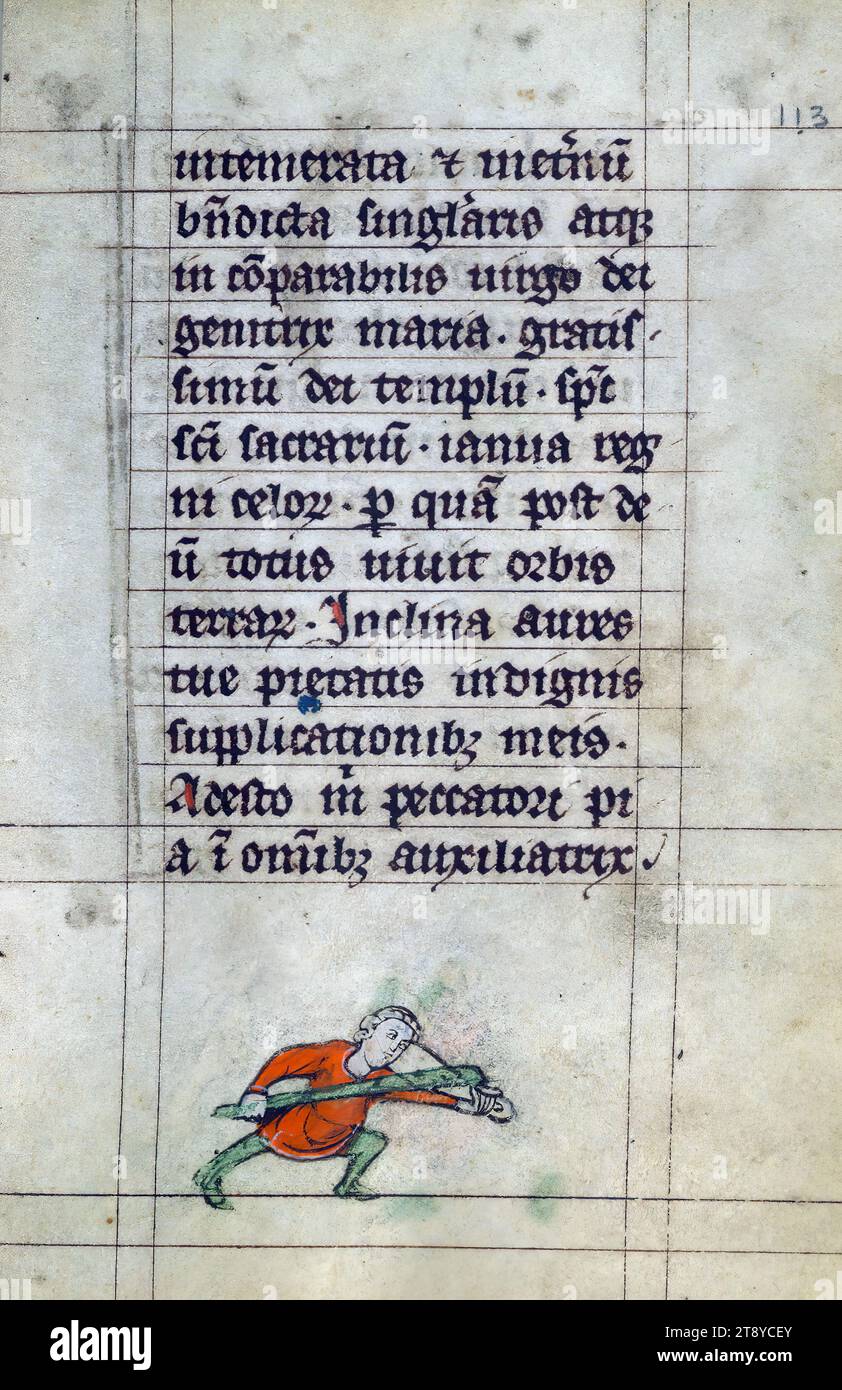 113
intemerata ⁊ inet̾nū
bn̄dicta singl̾aris atqꝫ
in cōparabilis uirgo dei
genitrix maria. gratis-
simū dei templū. sp̄c
sc̄i sacrariū. ianua reg
ni celoꝝ. ꝑ quā post de
ū totus uiuit orbis
terraꝝ. Inclina aures
tue pietatis indignis
supplicationibꝫ meis.
Adesto m̄ peccatori pi
a ī om̄ibꝫ auxiliatrix.
alamy
Image ID: 2T8YCEY
www.alamy.com